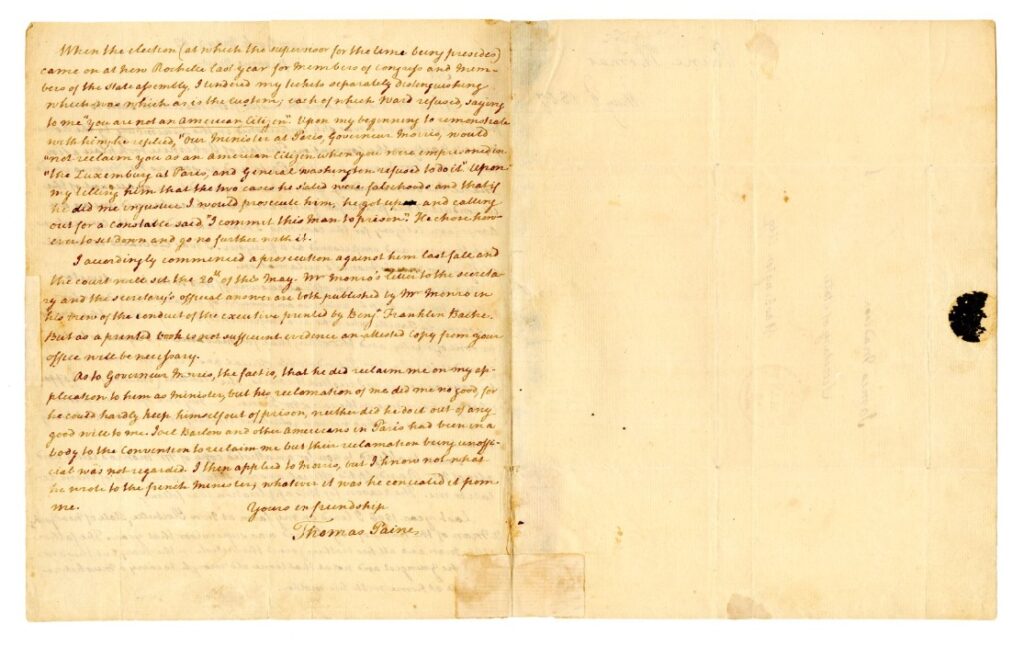 When the election (at which the supervisor for the time being presides)
came on at New Rochelle last year for Members of Congress and Mem-
bers of the state assembly, I tendered my tickets separately distinguishing
which was which as is the custom; each of which Ward refused, saying
to me "You are not an American Citizen". Upon my beginning to remonstrate
with him, he replied, "Our Minister at Paris, Governeur Morris, would
"not reclaim you as an American Citizen when you were imprisoned in
"the Luxemburg at Paris, and General Washington refused to do it" Upon
my telling him that the two cases he stated were falsehoods and that if
he did me injustice I would prosecute him, he got up and calling
out for a Constable said, "I commit this Man to prison". He chose how-
ever to set down and go no further with it.
I accordingly commenced a prosecution against him last fall and
the court will set the 20th of this May. Mr Monro's letter to the secreta-
ry and the secretary's official answer are both published by Mr Monro in
his View of the conduct of the executive printed by Benjn Franklin Bache.
But as a printed book is not sufficient evidence an attested copy from your
office will be necessary.
As to Governeur Morris, the fact is, that he did reclaim me on my ap-
plication to him as Minister, but his reclamation of me did me no good, for
he could hardly keep himself out of prison, neither did he do it out of any
good will to me. Joel Barlow and other Americans in Paris had been in a
body to the Convention to reclaim me but their reclamation being unoffi-
cial was not regarded. I then applied to Morris, but I know not what
he wrote to the french Minister; whatever it was he concealed it from
me.
Yours in friendship
Thomas Paine